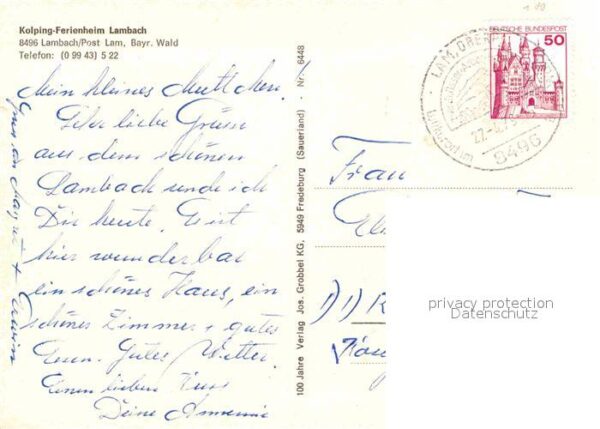 Kolping-Ferienheim Lambach
8496 Lambach/Post Lam, Bayr. Wald
Telefon: (0 99 43) 5 22
Mein kleines Muttchen!
liebe Grüsse
aus dem schönen
Lambach sende ich
Dir heute. Es ist
hier wunderbar
ein schönes Haus, ein
schönes Zimmer + gutes
Essen. Gutes Wetter.
Einen lieben Kuss
Deine
100 Jahre Verlag Jos. Grobbel KG, 5949 Fredeburg (Sauerland) - Nr. 6448
DEUTSCHE BUNDESPOST
50
8496
Luftkurort im
Frau
privacy protection
Datenschutz